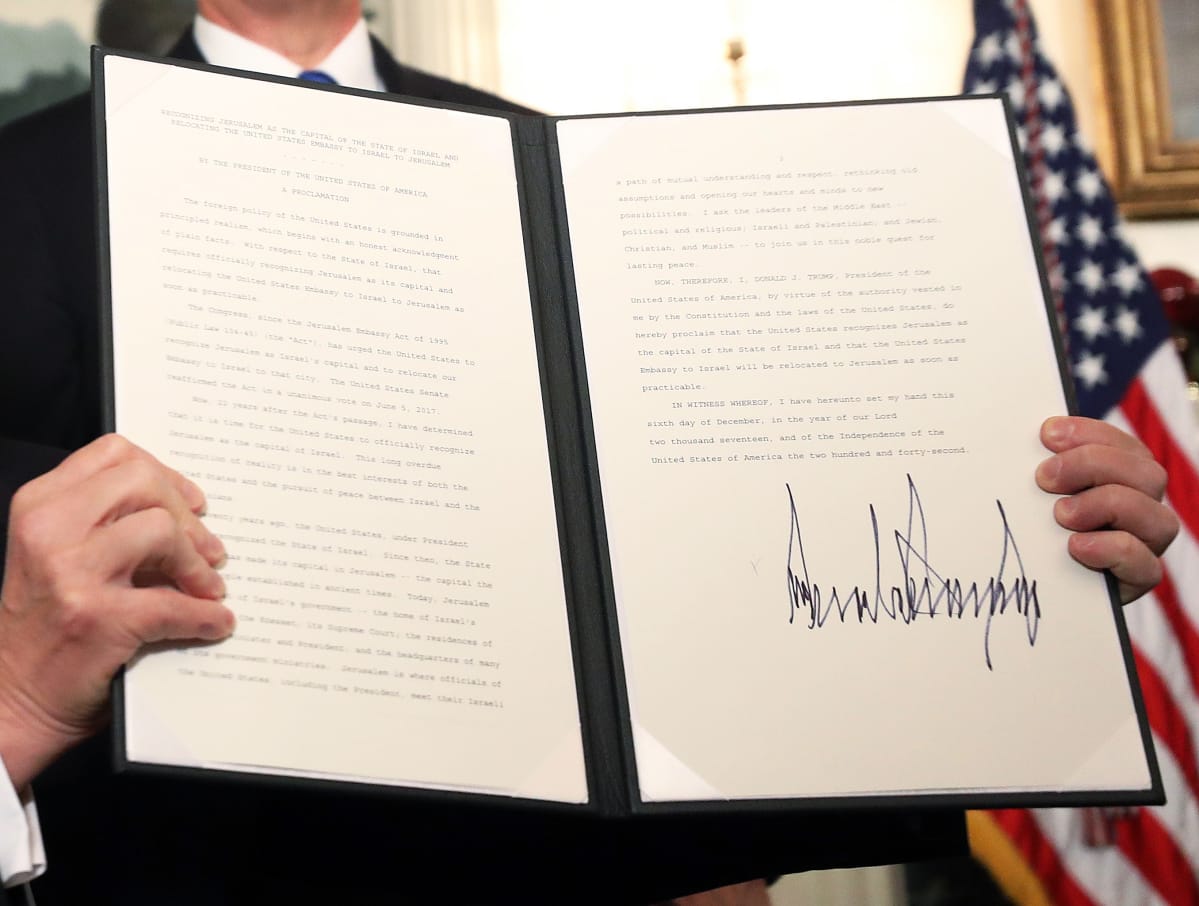 RECOGNIZING JERUSALEM AS THE CAPITAL OF THE STATE OF ISRAEL AND
RELOCATING THE UNITED STATES EMBASSY TO ISRAEL TO JERUSALEM
- - - - - - -
BY THE PRESIDENT OF THE UNITED STATES OF AMERICA
A PROCLAMATION
The foreign policy of the United States is grounded in
principled realism, which begins with an honest acknowledgment
of plain facts. With respect to the State of Israel, that
requires officially recognizing Jerusalem as its capital and
relocating the United States Embassy to Israel to Jerusalem as
soon as practicable.
The Congress, since the Jerusalem Embassy Act of 1995
(Public Law 104-45) (the "Act"), has urged the United States to
recognize Jerusalem as Israel's capital and to relocate our
Embassy to Israel to that city. The United States Senate
reaffirmed the Act in a unanimous vote on June 5, 2017.
Now, 22 years after the Act's passage, I have determined
that it is time for the United States to officially recognize
Jerusalem as the capital of Israel. This long overdue
recognition of reality is in the best interests of both the
United States and the pursuit of peace between Israel and the
years ago, the United States, under President
recognized the State of Israel. Since then, the State
has made its capital in Jerusalem -- the capital the
established in ancient times. Today, Jerusalem
of Israel's government -- the home of Israel's
the Knesset, its Supreme Court; the residences of
Minister and President; and the headquarters of many
of its government ministries. Jerusalem is where officials of
the United States, including the President, meet their Israeli
2
a path of mutual understanding and respect, rethinking old
assumptions and opening our hearts and minds to new
possibilities. I ask the leaders of the Middle East --
political and religious; Israeli and Palestinian; and Jewish,
Christian, and Muslim -- to join us in this noble quest for
lasting peace.
NOW, THEREFORE, I, DONALD J. TRUMP, President of the
United States of America, by virtue of the authority vested in
me by the Constitution and the laws of the United States, do
hereby proclaim that the United States recognizes Jerusalem as
the capital of the State of Israel and that the United States
Embassy to Israel will be relocated to Jerusalem as soon as
practicable.
IN WITNESS WHEREOF, I have hereunto set my hand this
sixth day of December, in the year of our Lord
two thousand seventeen, and of the Independence of the
United States of America the two hundred and forty-second.